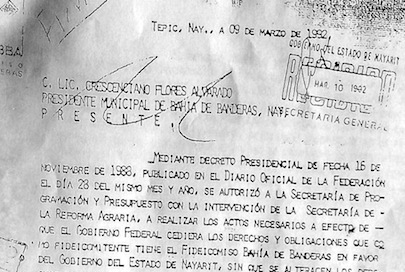 TEPIC, NAY., A 09 DE MARZO DE 1992
GOBIERNO DEL ESTADO DE NAYARIT
MAR 10 1992
SECRETARIA GENERAL
C. LIC. CRESCENCIANO FLORES ALVARADO
PRESIDENTE MUNICIPAL DE BAHÍA DE BANDERAS, NAY
P R E S E N T E.
MEDIANTE DECRETO PRESIDENCIAL DE FECHA 16 DE
NOVIEMBRE DE 1988, PUBLICADO EN EL DIARIO OFICIAL DE LA FEDERACIÓN
EL DÍA 28 DEL MISMO MES Y AÑO, SE AUTORIZÓ A LA SECRETARÍA DE PRO-
GRAMACIÓN Y PRESUPUESTO CON LA INTERVENCIÓN DE LA SECRETARÍA DE-
LA REFORMA AGRARIA, A REALIZAR LOS ACTOS NECESARIOS A EFECTO DE-
QUE EL GOBIERNO FEDERAL CEDIERA LOS DERECHOS Y OBLIGACIONES QUE CO
MO FIDEICOMITENTE TIENE EL FIDEICOMISO BAHÍA DE BANDERAS EN FAVOR
DEL GOBIERNO DEL ESTADO DE NAYARIT, SIN QUE SE ALTERACEN LOS